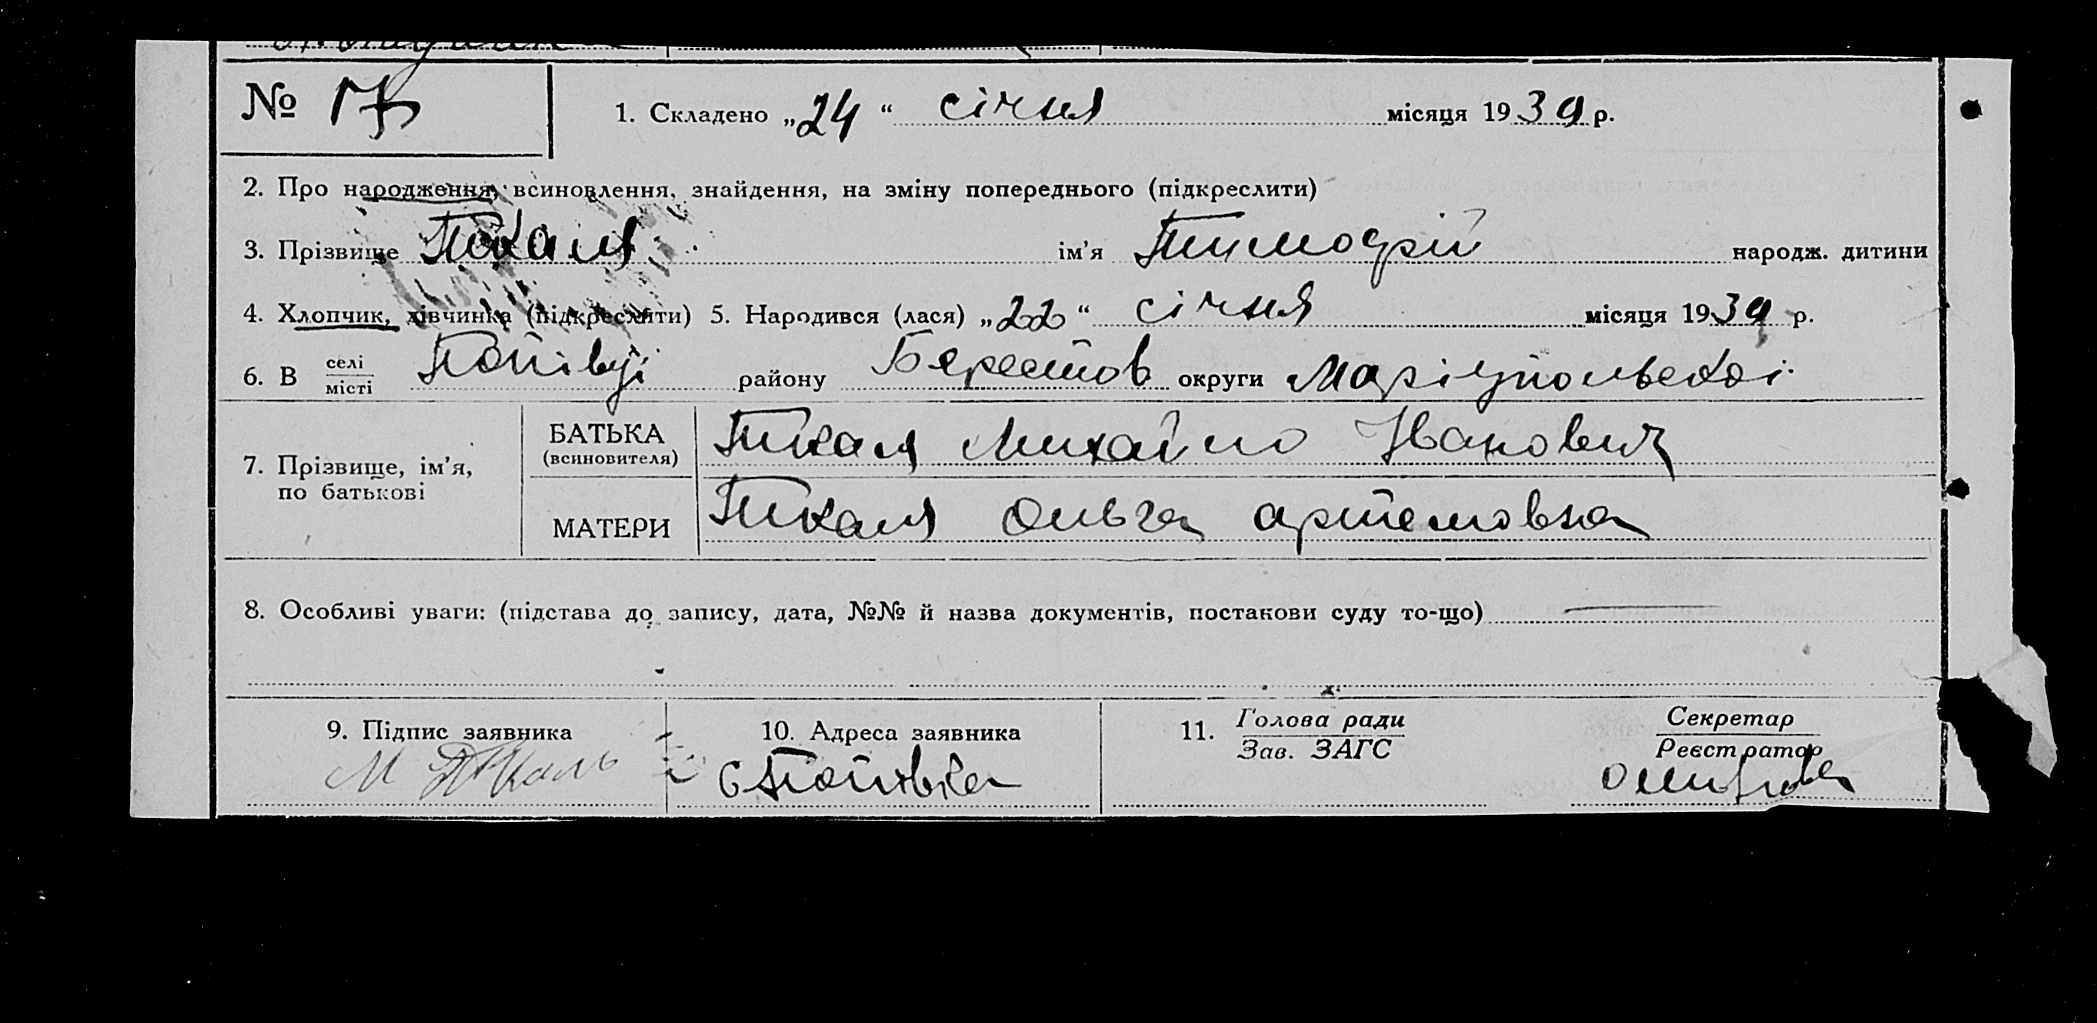 № 17
1. Складено „24“ січня місяця 1939 р.
2. Про народження, всиновлення, знайдення, на зміну попереднього (підкреслити)
3. Прізвище Ткаля ім'я Тимофій народж. дитини
4. Хлопчик, дівчинка (підкреслити) 5. Народився (лася) „22“ січня місяця 1939 р.
6. В селі місті Попівці району Берестов округи Маріупольської
7. Прізвище, ім'я, по батькові
БАТЬКА (всиновителя) Ткаля Михайло Іванович
МАТЕРИ Ткаля Ольга Артемовна
8. Особливі уваги: (підстава до запису, дата, №№ й назва документів, постанови суду то-що)
9. Підпис заявника 10. Адреса заявника 11. Голова ради Зав. ЗАГС Секретар Реєстратор
М Ткаль с Попівка